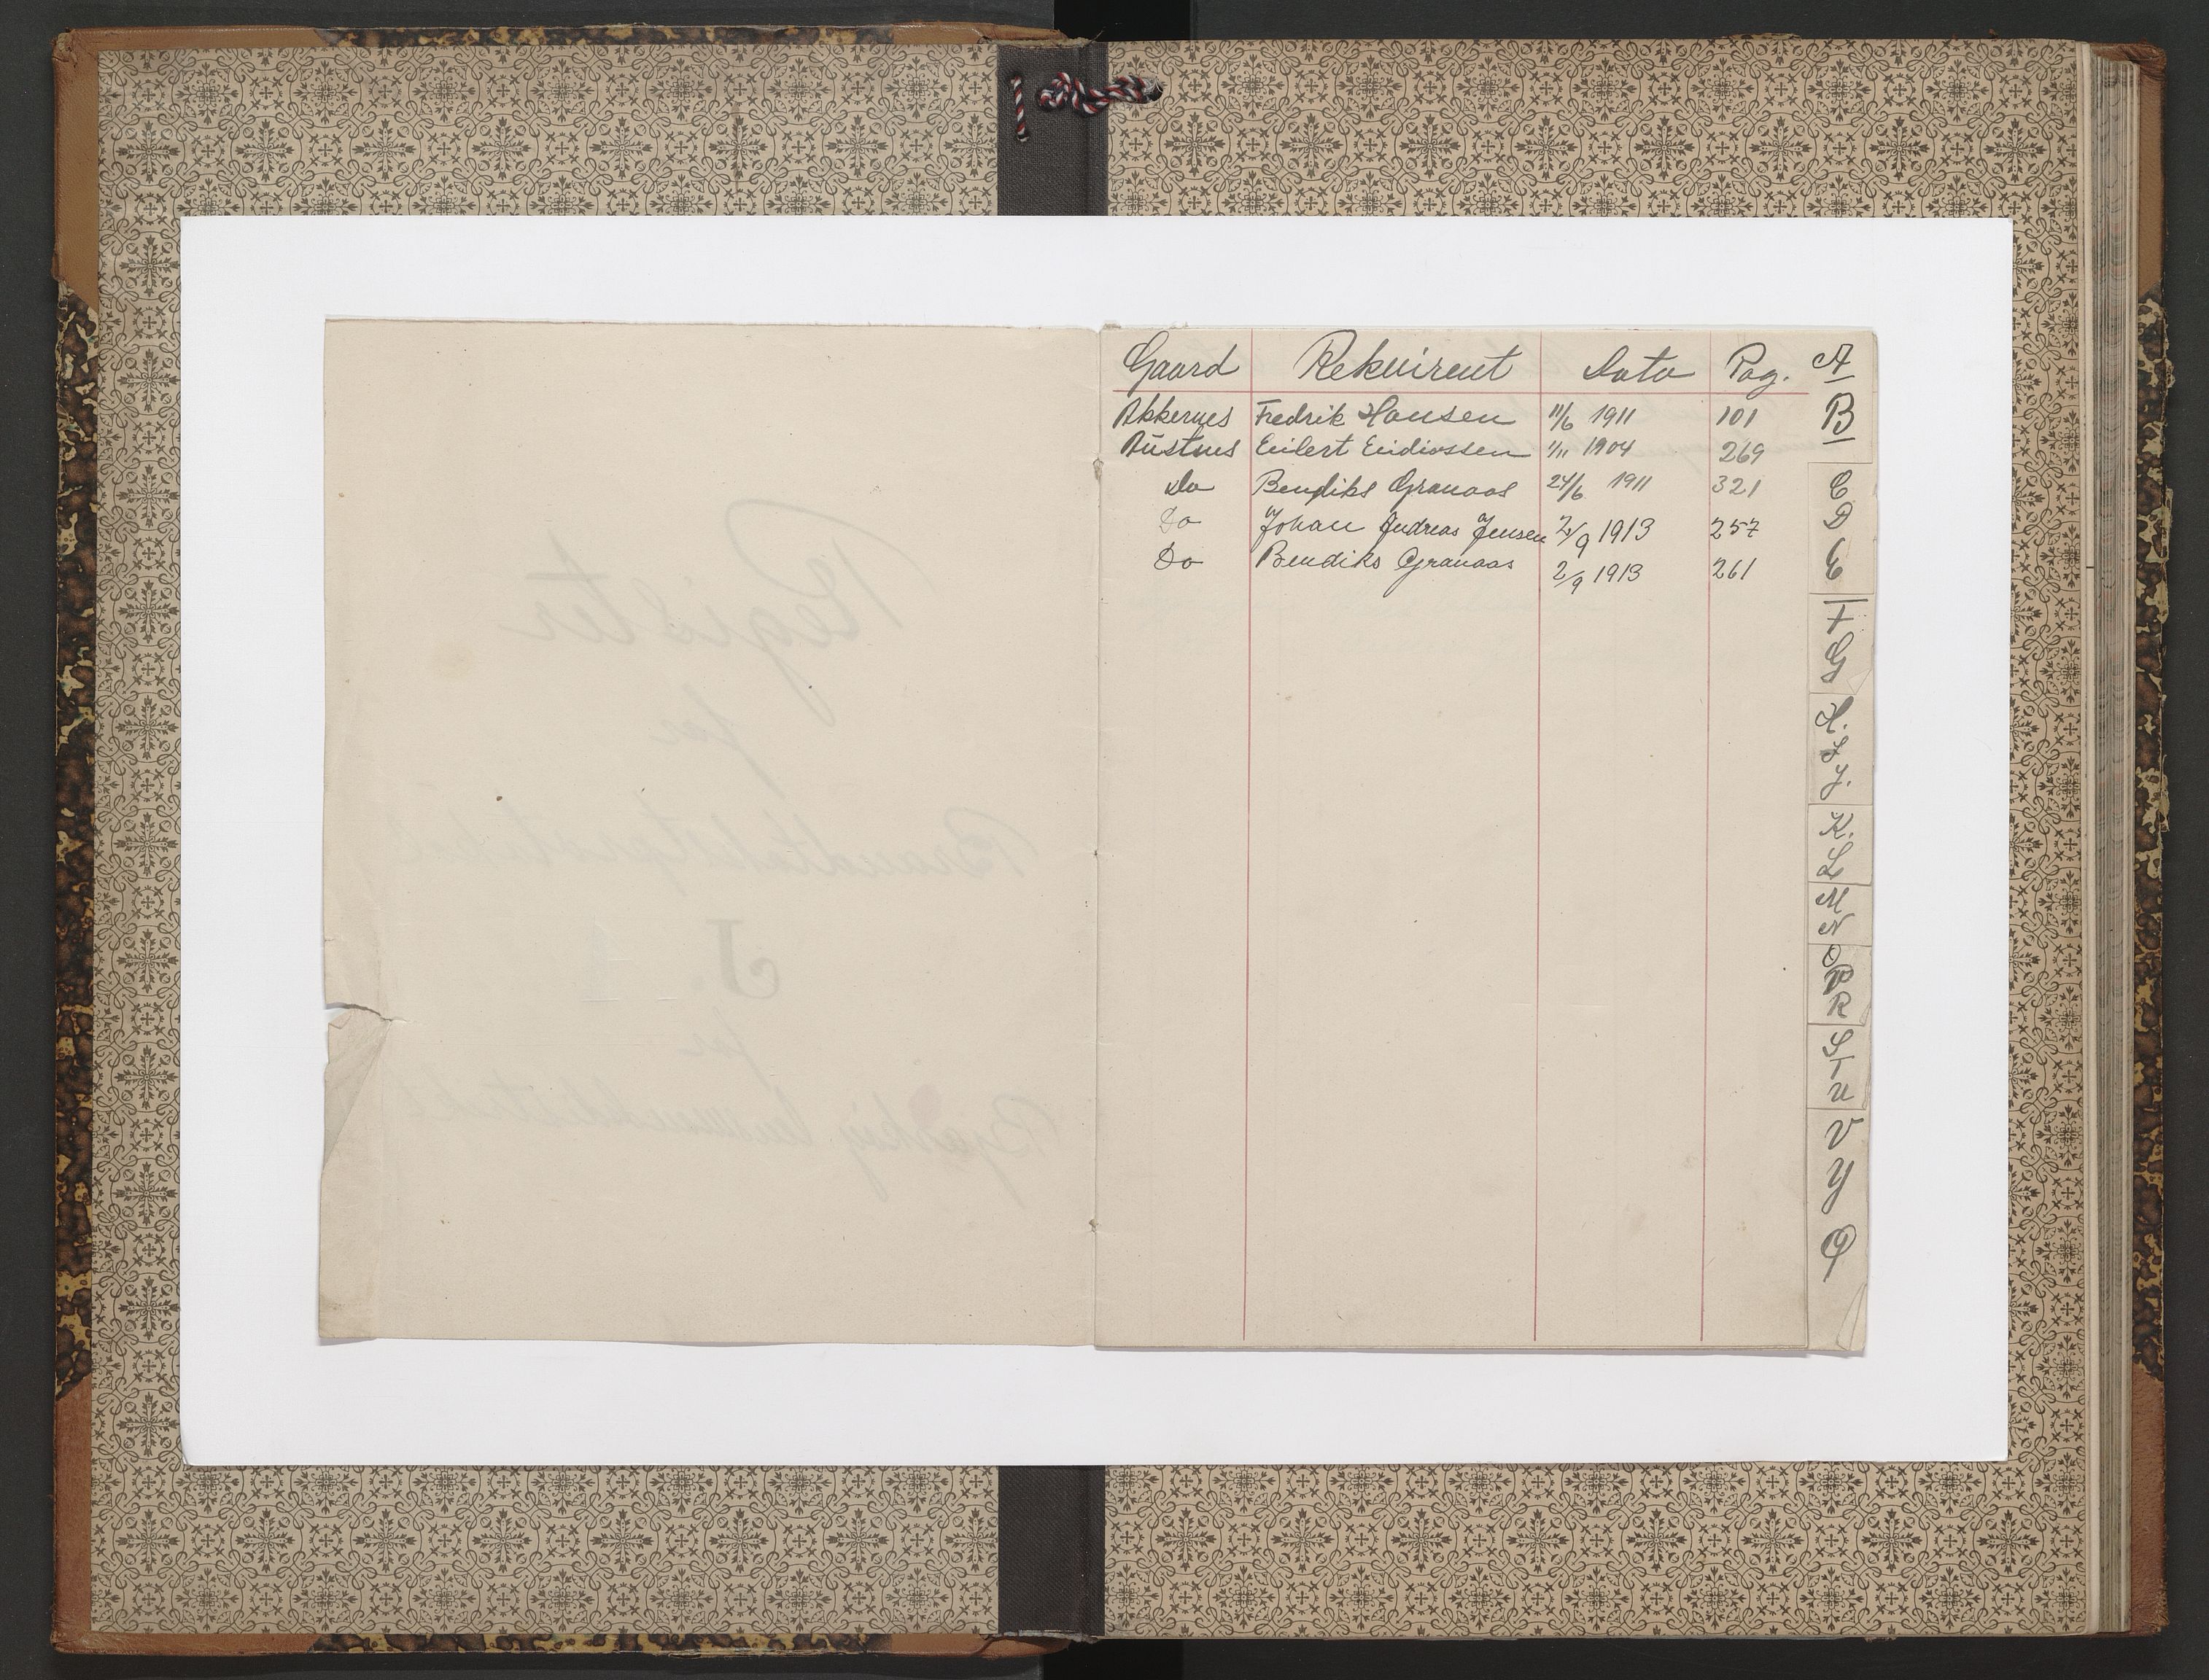 Register
for
J.
for
Gaard Rekvirent Dato Pag.
Akkernes Fredrik Hansen 11/6 1911 101
Austnes Eilert Eidissen 1/11 1904 269
Do Bendiks Granaas 24/6 1911 321
Do Johan Andreas Jensen 2/9 1913 257
Do Bendiks Granaas 2/9 1913 261
A
B
C
D
E
F
G
H.
I
J.
K.
L
M
N
O
P
R
S
T
U
V
Y
Ø